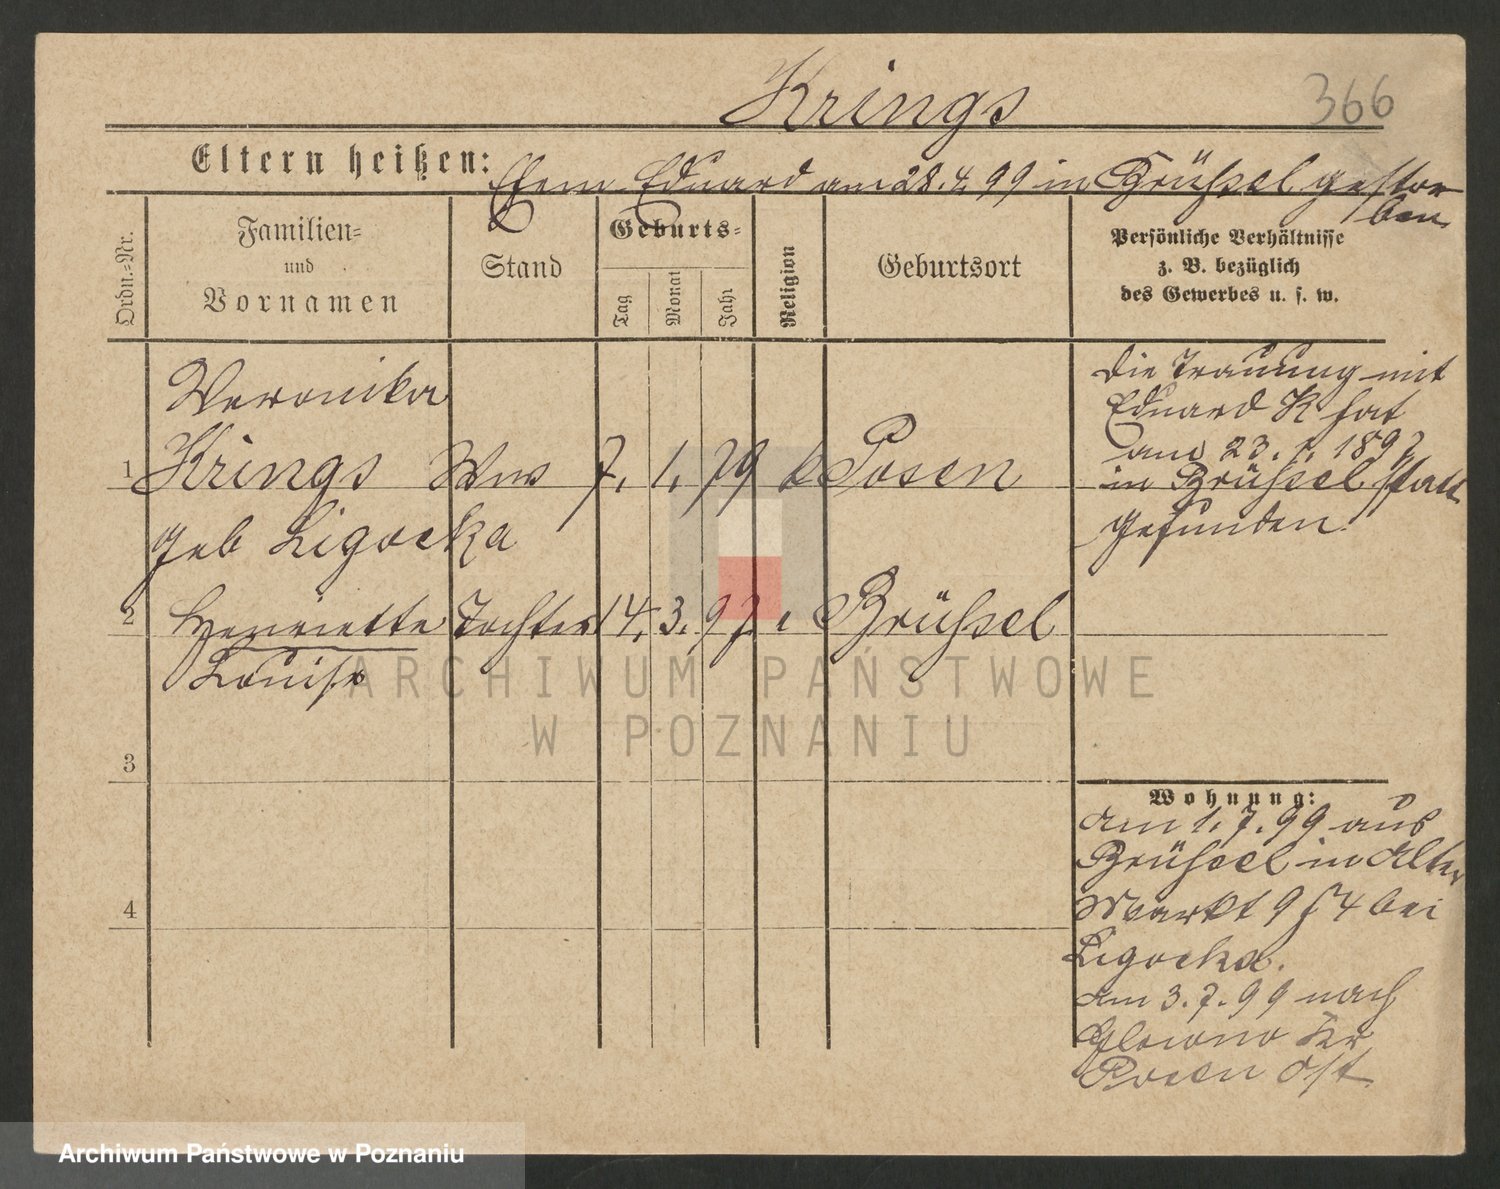 Krings 366
Eltern heißen: Ehem Eduard am 28.4.99 in Brüssel gestor
ben
Ordn.=Nr. Familien= und Vornamen Stand Geburts= Tag Monat Jahr Religion Geburtsort Persönliche Verhältnisse z. B. bezüglich des Gewerbes u. s. w.
Veronika
1 Krings Wwe 7. 1. 79 k Posen
geb Ligocka
2 Henriette Tochter 14. 3. 97 Brüssel
Louise
3
4
Die Trauung mit
Eduard K hat
am 23. 1. 1897
in Brüssel statt
gefunden.
Wohnung:
Am 1.7.99 aus
Brüssel in Alter
Markt 9 bei
Ligocka.
Am 3.7.99 nach
Glowno Kr
Posen Ost
ARCHIWUM PAŃSTWOWE
W POZNANIU
Archiwum Państwowe w Poznaniu